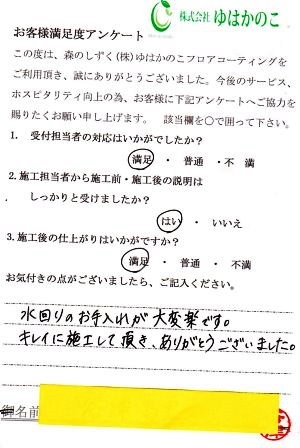 株式会社 ゆはかのこ
お客様満足度アンケート
この度は、森のしずく(株)ゆはかのこフロアコーティングを
ご利用頂き、誠にありがとうございました。今後のサービス、
ホスピタリティ向上の為、お客様に下記アンケートへご協力を
賜りたくお願い申し上げます。 該当欄を〇で囲って下さい。
1. 受付担当者の対応はいかがでしたか?
満足 ・ 普通 ・ 不満
2. 施工担当者から施工前・施工後の説明は
しっかりと受けましたか?
はい ・ いいえ
3. 施工後の仕上がりはいかがですか?
満足 ・ 普通 ・ 不満
お気付きの点がございましたら、ご記入ください。
水回りのお手入れが大変楽です。
キレイに施工して頂き、ありがとうございました。
御名前